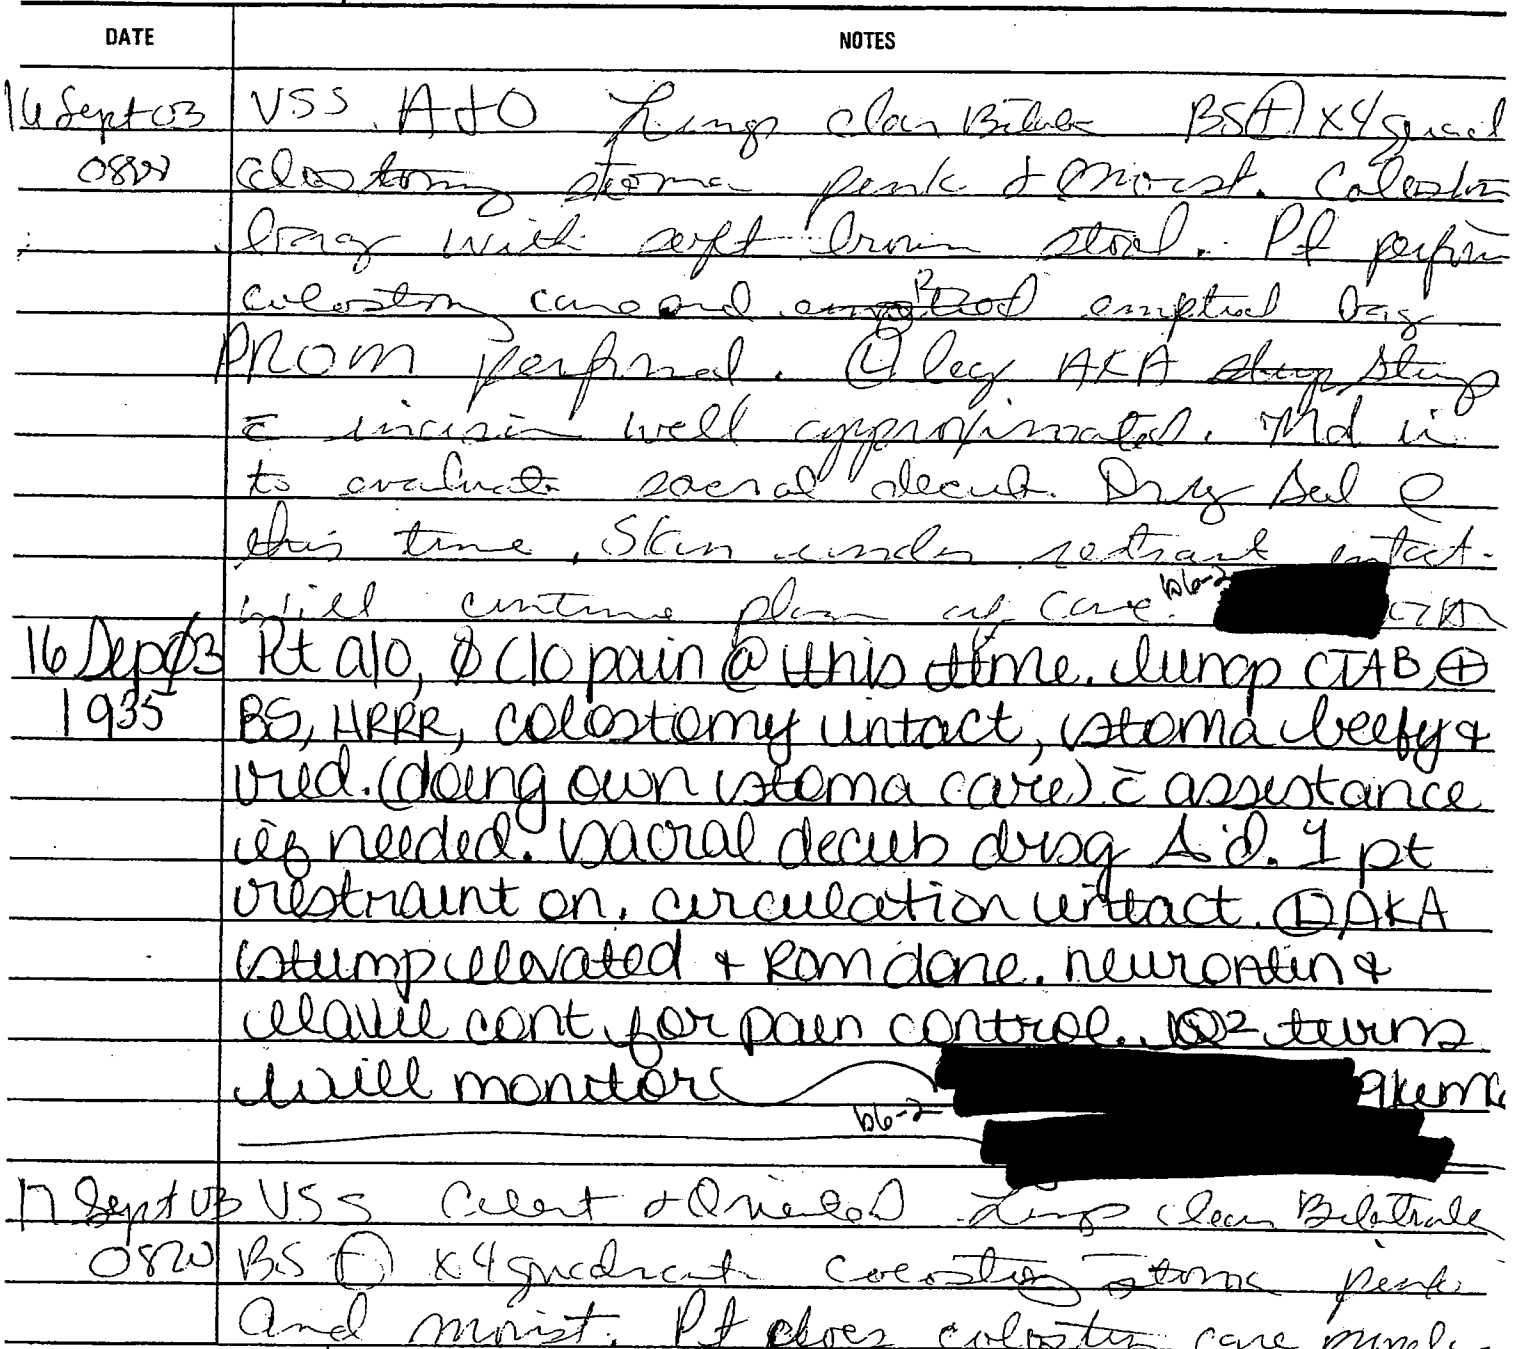 DATE NOTES
16 Sept 03 VSS A+O Lungs clear Bilater BS ⊕ x4 quad
colostomy stoma pink + moist. Colostom
bag with soft brown stool. Pt perform
colostomy care and emptied bag
PROM performed. Ⓛ leg AKA Stump
c̄ incision well approximated. Md in
to evaluate sacral decub. Drsg
this time. Skin under restraint intact.
Will continue plan of care. b6-2
16 Sep 03 Pt a/o, ∅ c/o pain @ this time. lungs CTAB, ⊕
1935 BS, HRRR, colostomy intact, stoma beefy +
red. (doing own stoma care) c̄ assistance
if needed. Sacral decub drsg Δ'd. 1 pt
restraint on, circulation intact. Ⓛ AKA
stump elevated + ROM done. neurontin +
elavil cont. for pain control. Q2° turns
will monitor
b6-2
17 Sept 03 VSS Alert + Oriented Lungs clear Bilatrale
0820 BS ⊕ x4 quadrant colostomy stoma pink
And moist. Pt does colostomy care